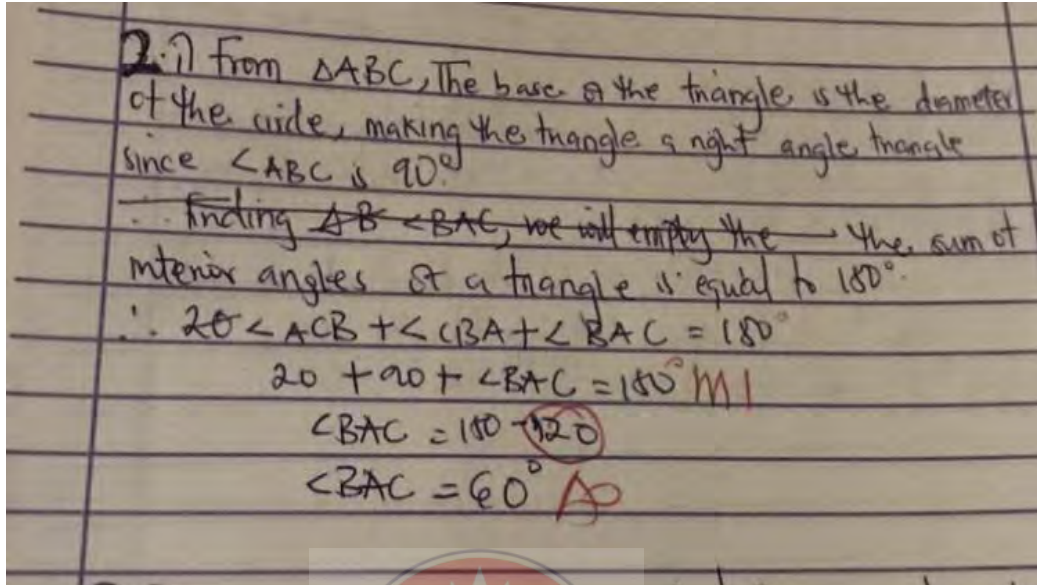 2.i) From ΔABC, The base of the triangle is the diameter
of the circle, making the triangle a right angle triangle
since <ABC is 90°.
∴ finding AB <BAC, we will empty the the sum of
interior angles of a triangle is equal to 180°.
∴ 20 <ACB + <CBA + <BAC = 180°
20 + 90 + <BAC = 180° M1
<BAC = 180 - 120
<BAC = 60° A0